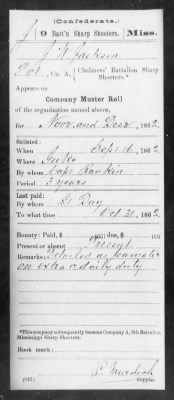 (Confederate.)
J 9 Batt'n Sharp Shooters. Miss.
J W Jackson
Pvt, Co. A, Chalmers' Battalion Sharp Shooters.*
Appears on
Company Muster Roll
of the organization named above,
for Nov. and Decr, 1862
Enlisted:
When Sept 16, 1862
Where
By whom Capt Rankin
Period 3 years
Last paid:
By whom Day
To what time Oct 31, 1862
Bounty: Paid, $ 100; due, $ 100
Present or absent Present
Remarks: Detailed as teamster
on extra or daily duty
*This company subsequently became Company A, 9th Battalion
Mississippi Sharp Shooters.
Book mark:
(642) Copyist.